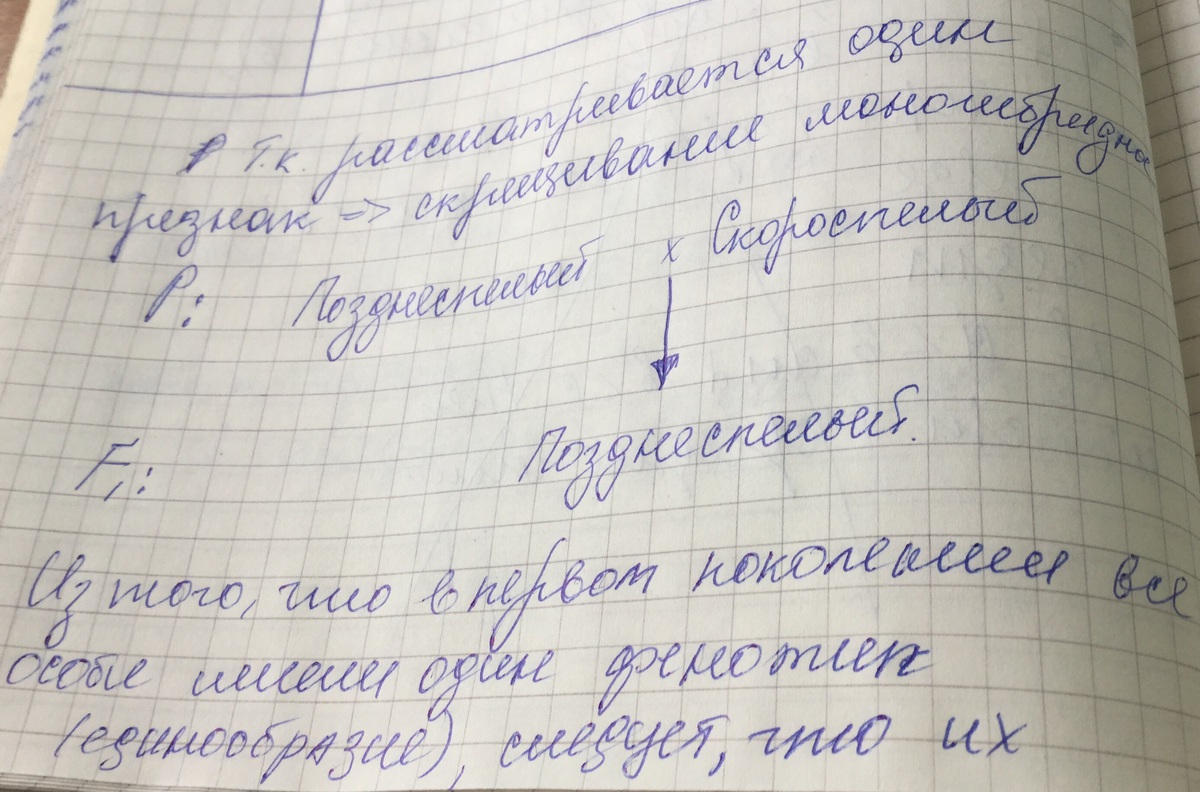 Т.к. рассматривается один
признак => скрещивание моногибридно
P: Позднеспелый x Скороспелый
F₁: Позднеспелый.
Из того, что в первом поколении все
особи имели один фенотип
(единообразие), следует, что их